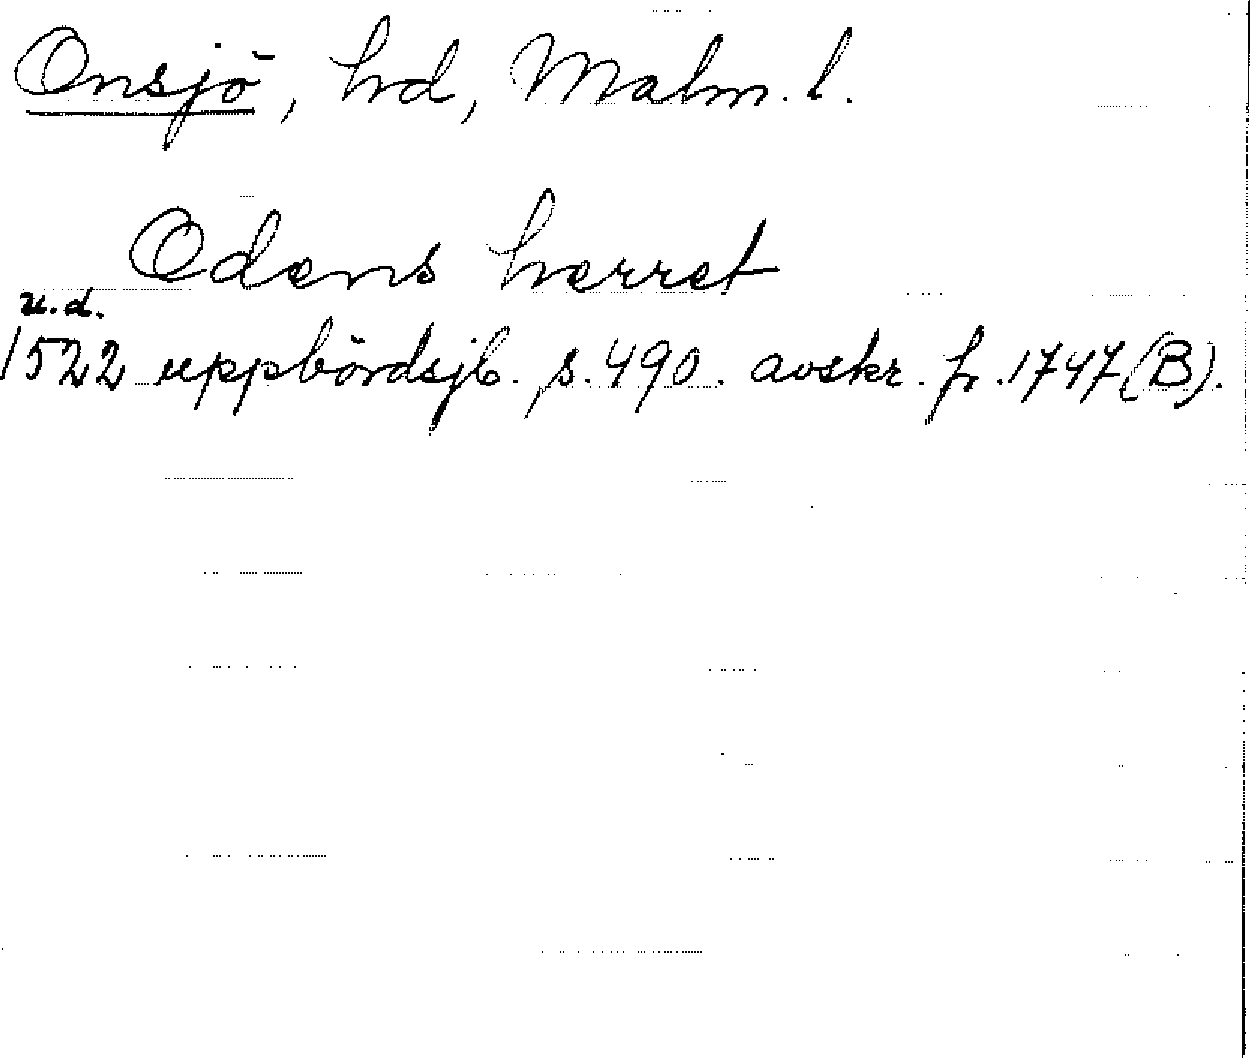 Onsjö, hd, Malm. l.
Odens herret
u.d.
1522 uppbördsjb. s. 490. avskr. fr. 1747 (B).